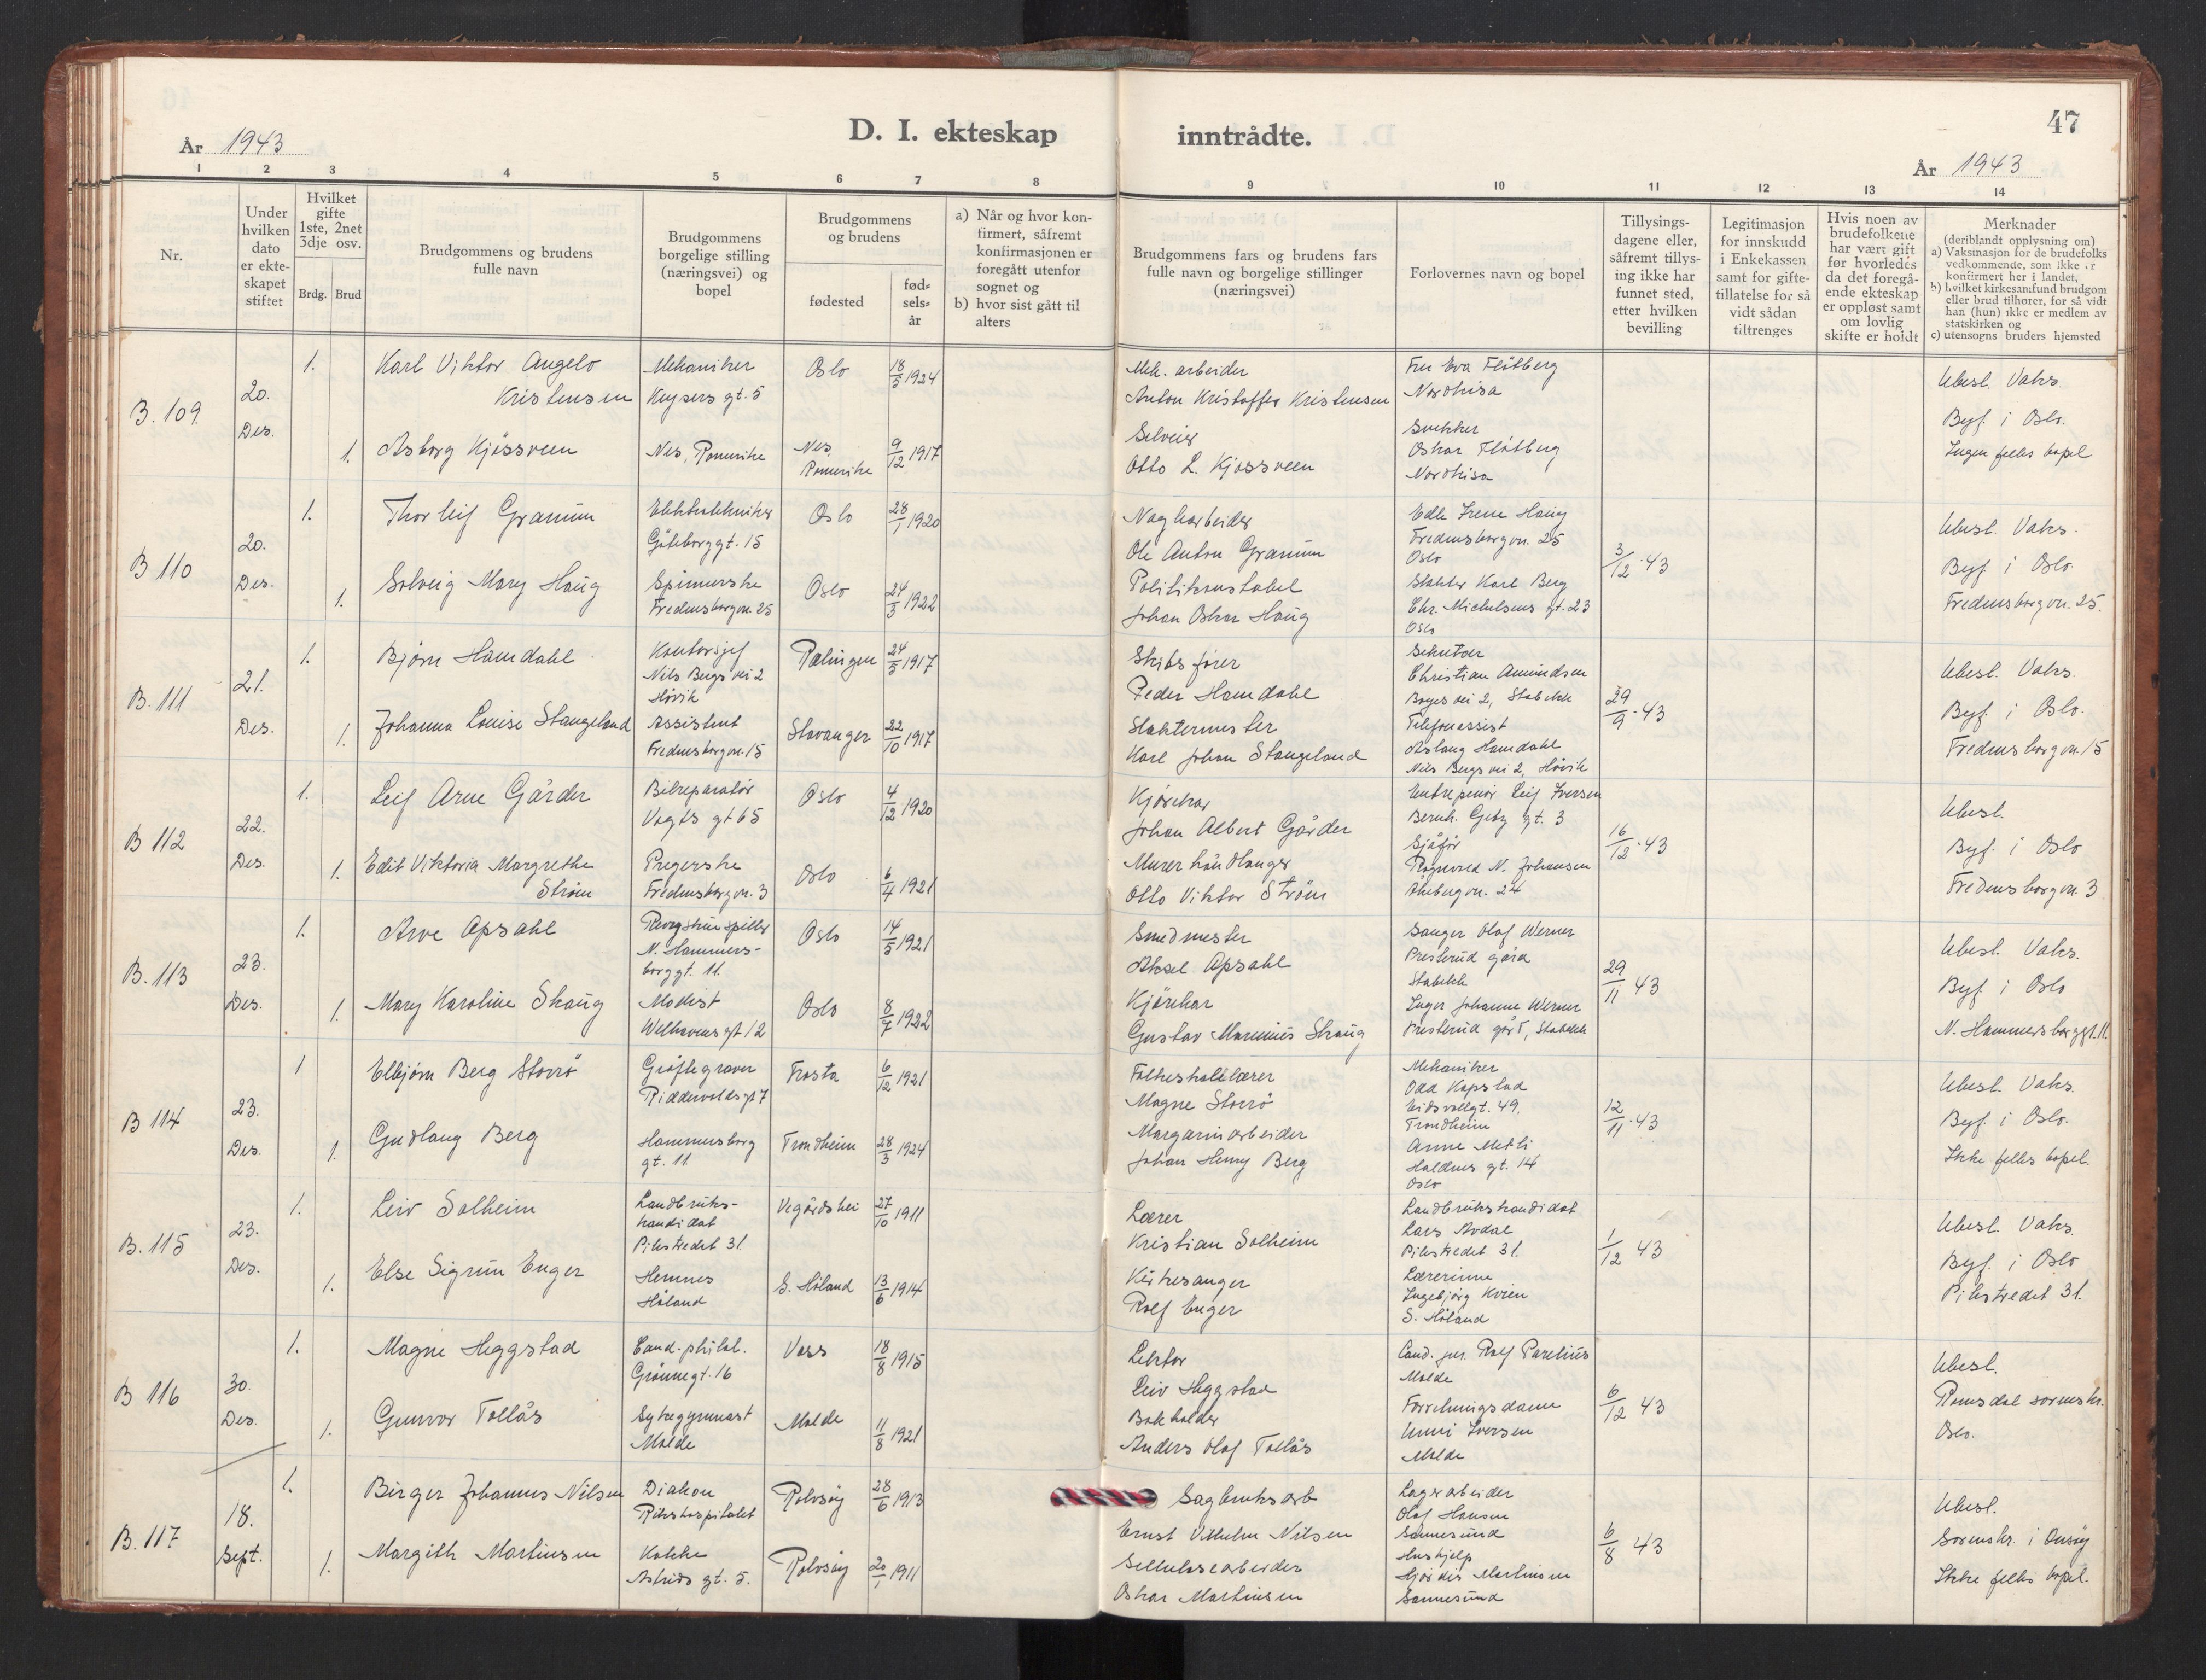 47
D. I. ekteskap inntrådte.
År 1943
År 1943
1 2 3 4 5 6 7 8 9 10 11 12 13 14
Nr.
Under hvilken dato er ekte-skapet stiftet
Hvilket gifte 1ste, 2net 3dje osv.
Brdg. Brud
Brudgommens og brudens fulle navn
Brudgommens borgelige stilling (næringsvei) og bopel
Brudgommens og brudens
fødested
fød-sels-år
a) Når og hvor kon-firmert, såfremt konfirmasjonen er foregått utenfor sognet og
b) hvor sist gått til alters
Brudgommens fars og brudens fars fulle navn og borgelige stillinger (næringsvei)
Forlovernes navn og bopel
Tillysings-dagene eller, såfremt tillys-ing ikke har funnet sted, etter hvilken bevilling
Legitimasjon for innskudd i Enkekassen samt for gifte-tillatelse for så vidt sådan tiltrenges
Hvis noen av brudefolkene har vært gift før hvorledes da det foregå-ende ekteskap er oppløst samt om lovlig skifte er holdt
Merknader
(deriblandt opplysning om)
a) Vaksinasjon for de brudefolks vedkommende, som ikke er konfirmert her i landet,
b) hvilket kirkesamfund brudgom eller brud tilhører, for så vidt han (hun) ikke er medlem av statskirken og
c) utensogns bruders hjemsted
B. 109.
20.
Des.
1.
Karl Viktor Angelo
Kristensen
Mekaniker
Keysers gt. 5
Oslo
18/5 1924
Mek. arbeider
Anton Kristoffer Kristensen
Fru Eva Flåtberg
Nordkisa
Ubesl. Vaks.
Byf. i Oslo.
Ingen felles bopel
1.
Asborg Kjøssveen
Nes, Romerike
Nes, Romerike
9/12 1917
Selveier
Otto L. Kjøssveen
Snekker
Oskar Flåtberg
Nordkisa
B 110
20.
Des.
1.
Thorleif Granum
Elektrotekniker
Gøteborggt. 15
Oslo
28/1 1920
Ole Anton Granum
Edle Irene Haug
Fredensborgvn. 25
Oslo
3/12 - 43
Ubesl. Vaks.
Byf. i Oslo.
Fredensborgvn. 25.
1.
Solveig Mary Haug
Spinnerske
Fredensborgvn. 25
Oslo
24/3 1922
Politikonstabel
Johan Oskar Haug
Slakter Karl Berg
Chr. Michelsens gt. 23
Oslo
B. 111
21.
Des.
1.
Bjørn Hamdahl
Kontorsjef
Nils Bergs vei 2
Høvik
Rælingen
24/5 1917
Skibsfører
Peder Hamdahl
Sekretær
Christian Amundsen
Boges vei 2, Stabekk
29/9 - 43
Ubesl. Vaks.
Byf. i Oslo.
Fredensborgvn. 15
1.
Johanna Louise Stangeland
Assistent
Fredensborgvn. 15
Stavanger
22/10 1917
Slaktermester
Karl Johan Stangeland
Telefonassist
Aslaug Hamdahl
Nils Bergs vei 2, Høvik
B 112
22.
Des.
1.
Leif Arne Gårder
Bilreparatør
Vogts gt 65
Oslo
4/12 1920
Kjørekar
Johan Albert Gårder
Entreprenør Leif Iversen
Bernh. Getz gt. 3
16/12 - 43
Ubesl.
Byf. i Oslo
Fredensborgvn. 3
1.
Edit Viktoria Margrethe
Strøm
Pregerske
Fredensborgvn. 3
Oslo
6/4 1921
Murerhåndlanger
Otto Viktor Strøm
Sjåfør
Ragnvald N. Johansen
Åkebergvn. 24
B. 113
23.
Des.
1.
Arve Opsahl
N. Hammers-
borggt. 11.
Oslo
14/5 1921
Smedmester
Aksel Opsahl
Sanger Olaf Werner
Presterud gård
Stabekk
29/11 43
Ubesl. Vaks.
Byf i Oslo
N. Hammersborggt. 11.
1.
Mary Karoline Skaug
Modist
Welhavensgt 12
Oslo
8/7 1922
Kjørekar
Gustav Marinius Skaug
Inger Johanne Werner
Presterud gård, Stabekk
B 114
23.
Des.
1
Elbjørn Berg Storrø
Grøftegraver
Riddervoldsgt 7
Frosta
6/12 1921
Folkeskolelærer
Magne Storrø
Mekaniker
Odd Kapstad
Eidsvollgt. 49.
Trondheim
12/11 - 43
Ubesl. Vaks.
Byf. i Oslo.
Ikke felles bopel.
1.
Gudlaug Berg
Hammersborg
gt. 11
Trondheim
28/3 1924
Margarinarbeider
Johan Henry Berg
Anne Metli
Haldens gt. 14
Oslo
B. 115
23.
Des.
1.
Leiv Solheim
Landbruks-
kandidat
Pilestredet 31.
Vegårdshei
27/10 1911
Lærer
Kristian Solheim
Landbrukskandidat
Lars Avdal
Pilestredet 31.
1/12 43
Ubesl. Vaks.
Byf. i Oslo
Pilestredet 31.
1.
Else Sigrun Enger
Hemnes
Høland
S. Høland
13/6 1914
Kirkesanger
Rolf Enger
Lærerinne
Ingebjørg Kvien
S. Høland
B 116
30.
Des.
1.
Magne Heggstad
Cand. philol.
Grønnegt. 16
Voss
18/8 1915
Lektor
Leiv Heggstad
Cand. jur. Rolf Parelius
Molde
6/12 43
Ubesl.
Romsdal sorenskr.
Oslo.
1.
Gunvor Tollås
Sykegymnast
Molde
Molde
11/8 1921
Bokholder
Anders Olaf Tollås
Forretningsdame
Unni Iversen
Molde
B. 117
18.
Sept.
1.
Birger Johannes Nilsen
Diakon
Rikshospitalet
Rolvsøy
28/6 1913
Sagbruksarb
Ernst Vilhelm Nilsen
Lagerarbeider
Olaf Hansen
Sannesund
6/8 43
Ubesl.
Sorenskr. i Onsøy
Ikke felles bopel.
1.
Margith Martinsen
Kokke
Astrids gt. 5.
Rolvsøy
20/1 1911
Cellulosearbeider
Oskar Martinsen
Hushjelp
Hjørdis Martinsen
Sannesund